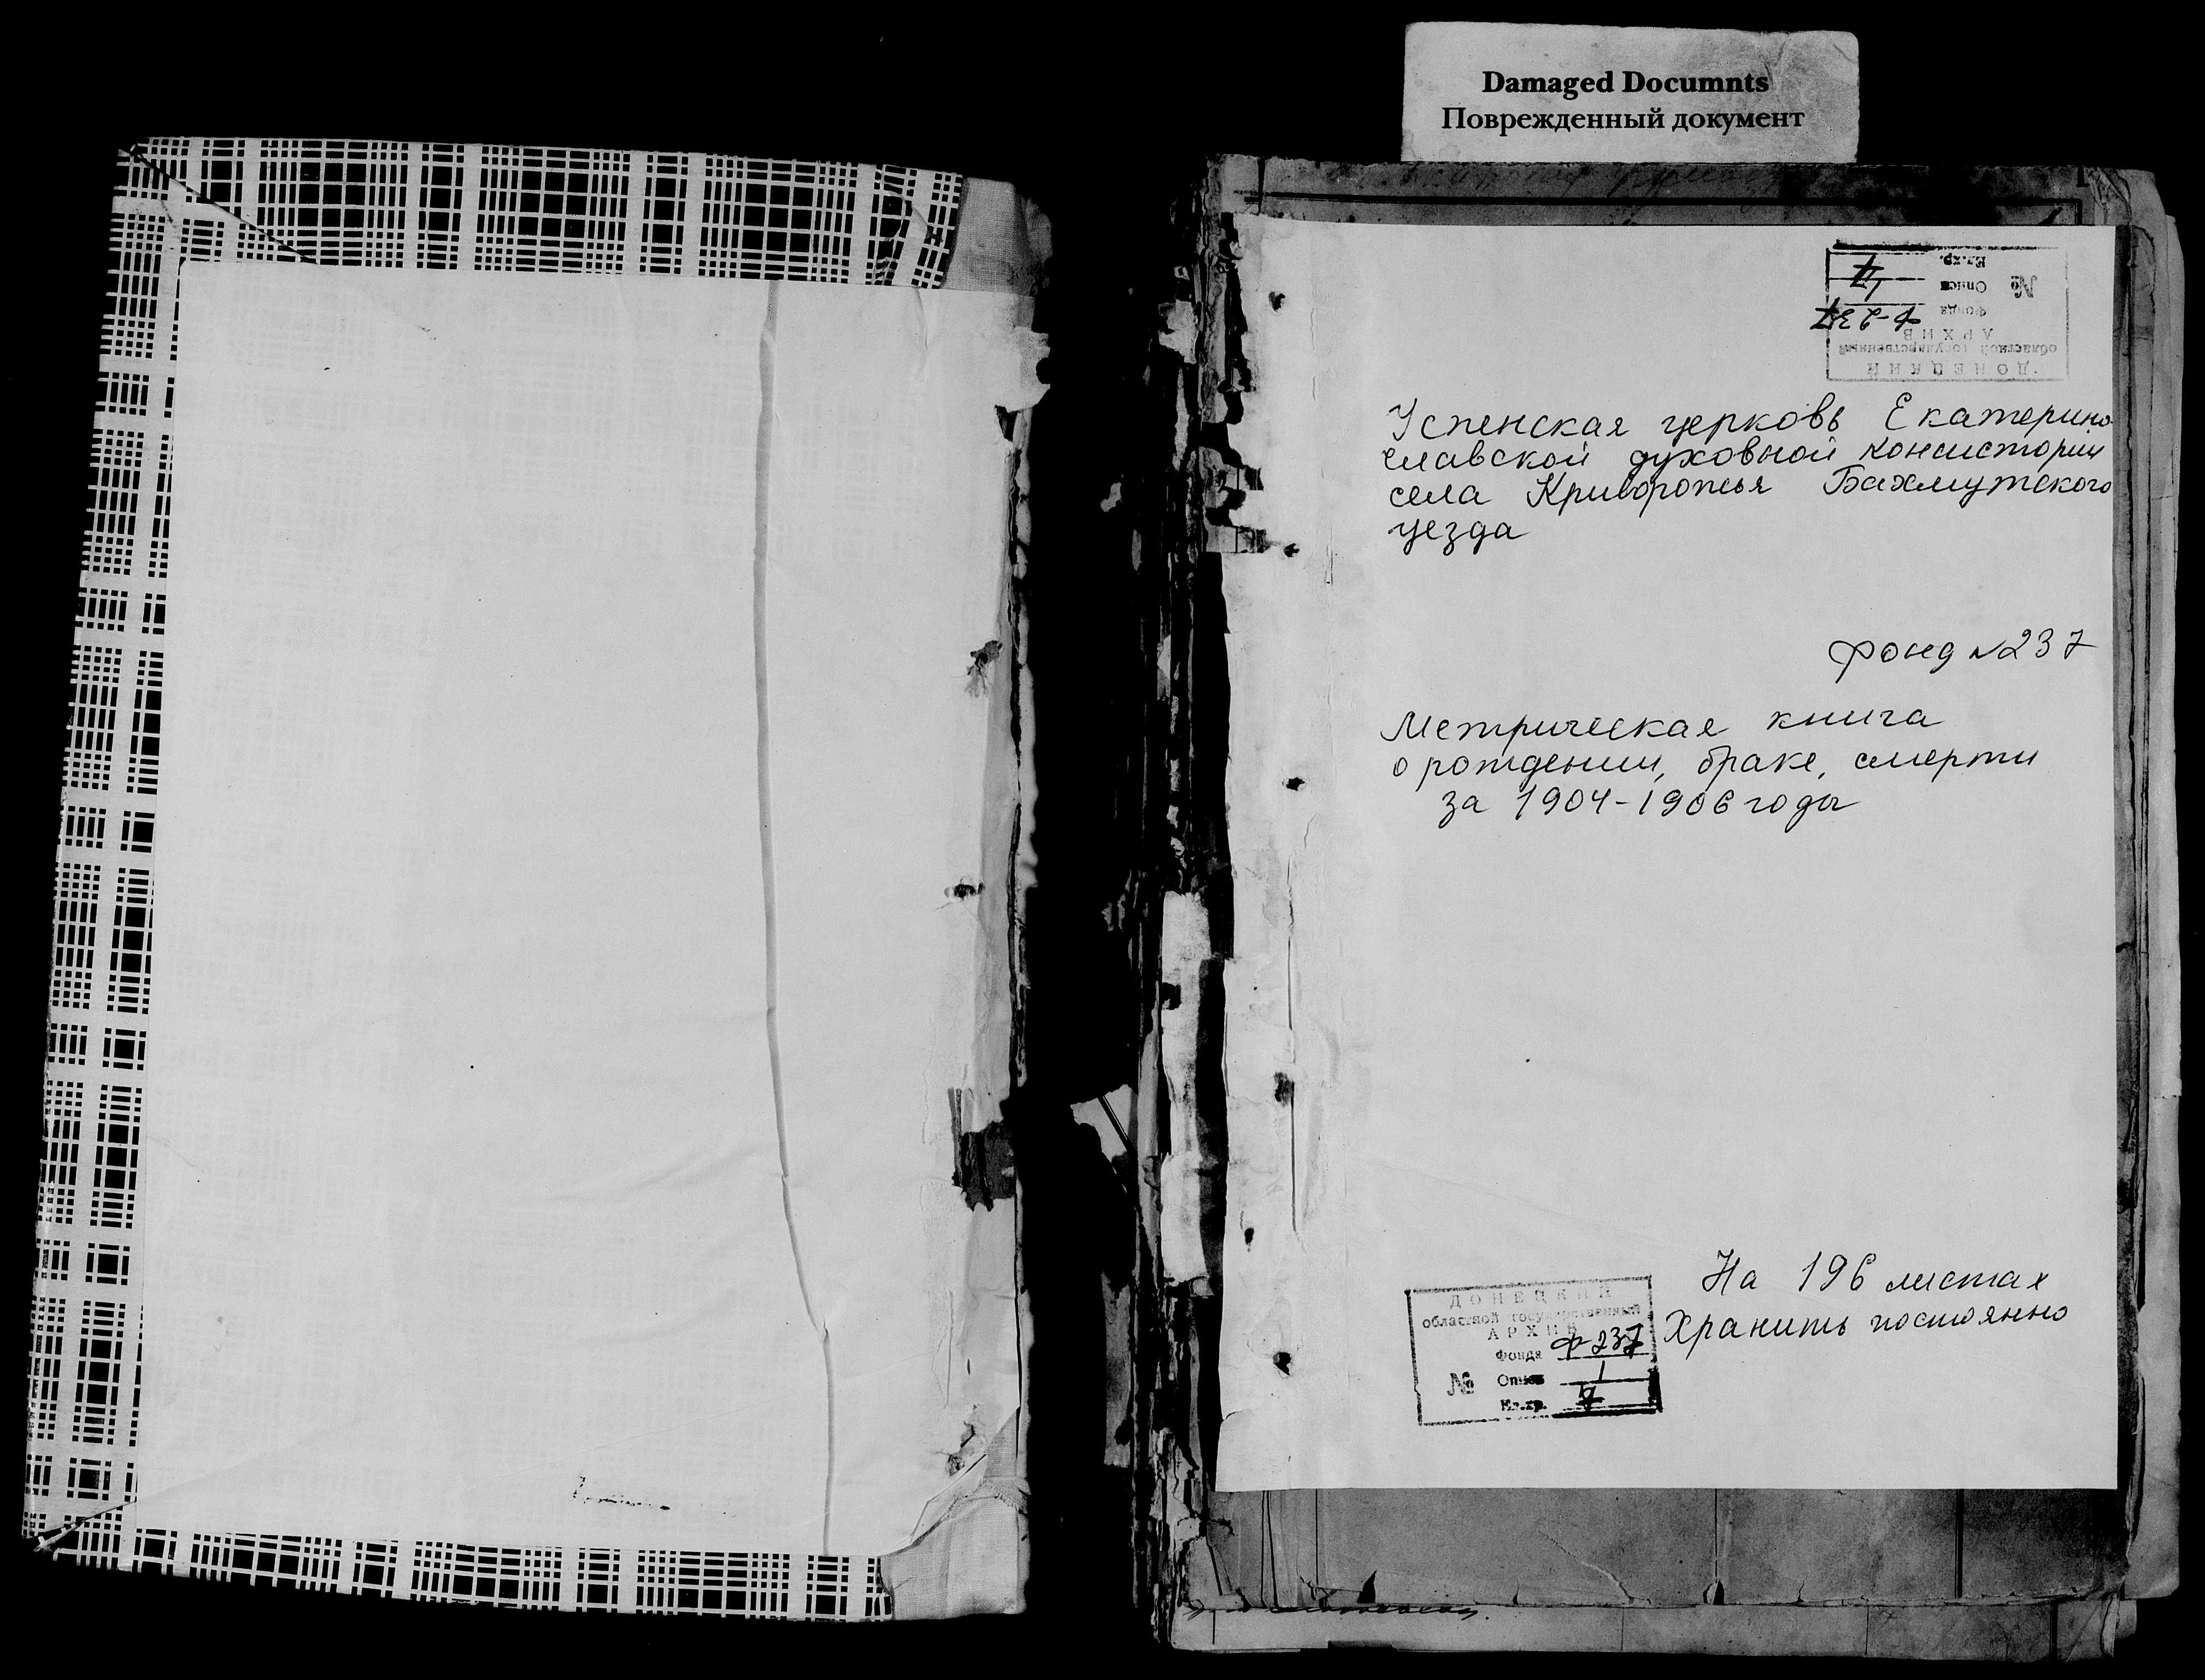 Damaged Documnts
Поврежденный документ
ДОНЕЦКИЙ
областной государственный
АРХИВ
Фонда Ф-237
№ Описи 1
Ед.хр.
Успенская церковь Екатерино
славской духовной консистории
села Криворожья Бахмутского
уезда
фонд №237
Метрическая книга
о рождении, браке, смерти
за 1904-1906 годы
На 196 листах
Хранить постоянно
ДОНЕЦКИЙ
областной государственный
АРХИВ
Фонда Ф-237
№ Описи 1
Ед.хр.